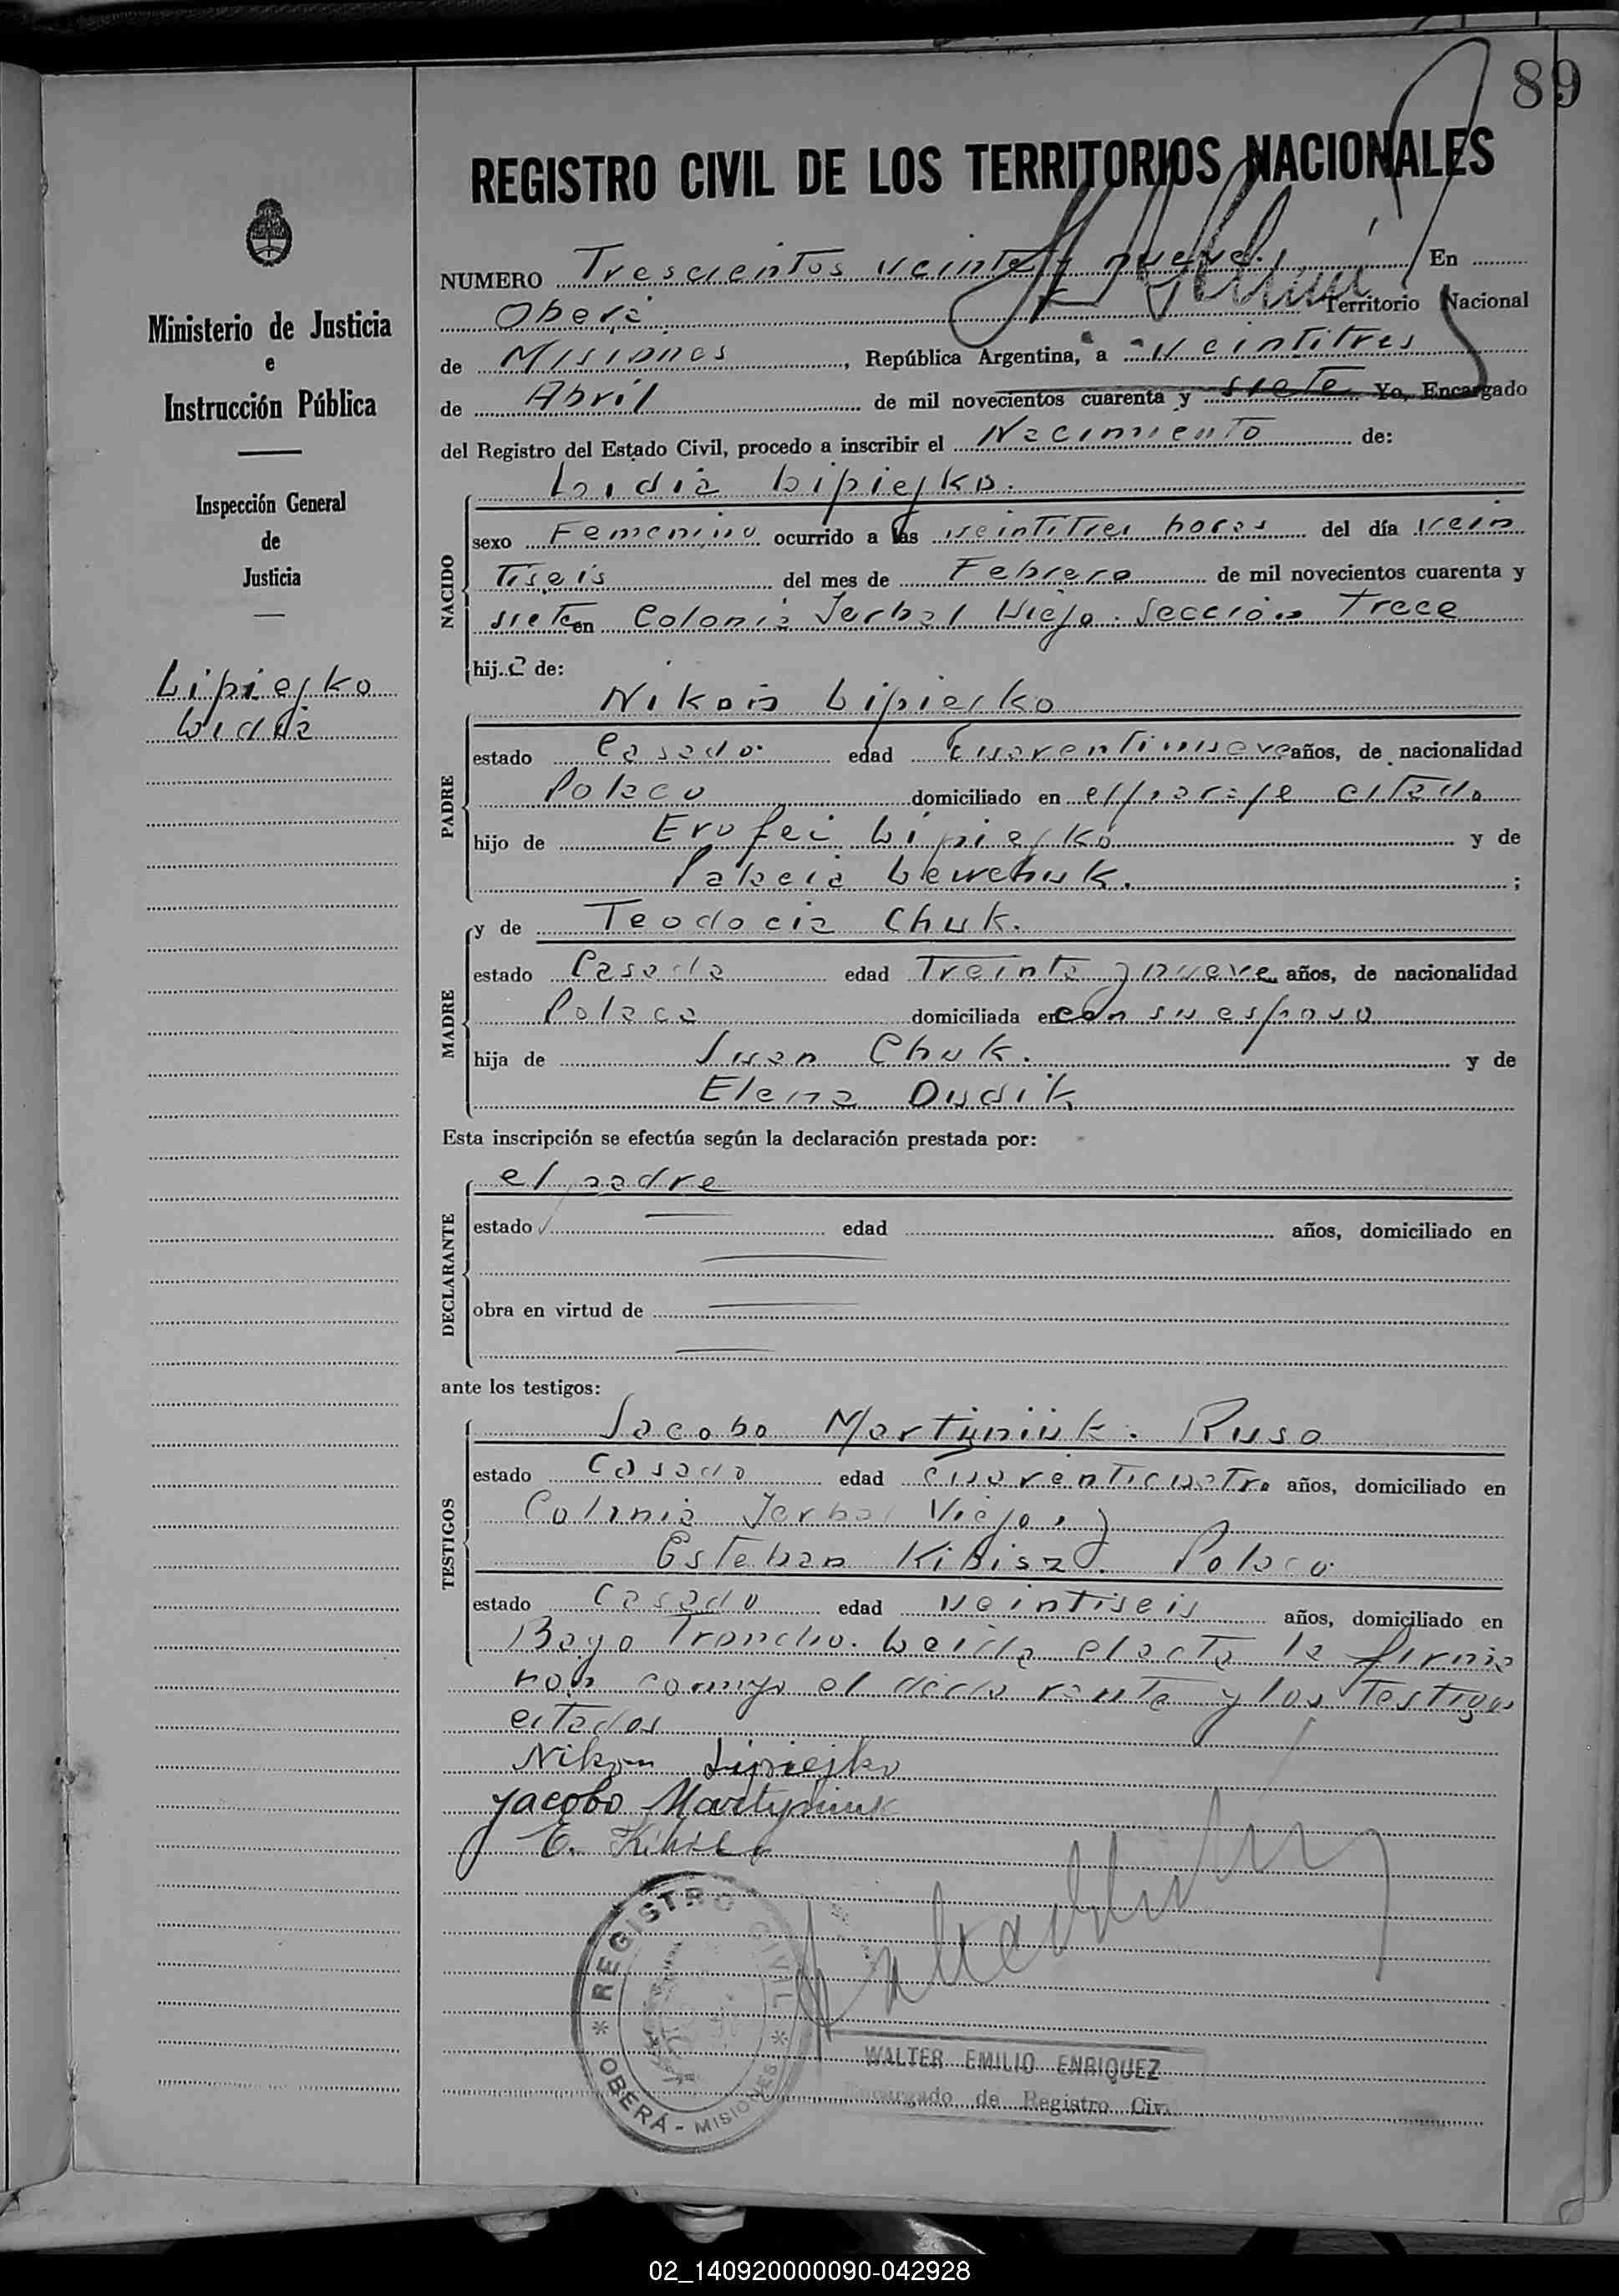 89
REGISTRO CIVIL DE LOS TERRITORIOS NACIONALES
NUMERO Trescientos veinte y nueve. En
Oberá Territorio Nacional
de Misiones, República Argentina, a veintitres
de Abril de mil novecientos cuarenta y siete Yo, Encargado
del Registro del Estado Civil, procedo a inscribir el Nacimiento de:
Ministerio de Justicia
e
Instrucción Pública
Inspección General
de
Justicia
Lipiejko
Lidia
NACIDO
Lidia Lipiejko.
sexo Femenino ocurrido a las veintitres horas del día vein
tiseis del mes de Febrero de mil novecientos cuarenta y
siete en Colonia Yerbal Viejo. Sección Trece
hija de:
PADRE
Nikon Lipiejko
estado Casado. edad Cuarentinueve años, de nacionalidad
Polaco domiciliado en el paraje citado
hijo de Erofei Lipiejko y de
Palacia Lewchuk. ;
MADRE
y de Teodocia Chuk.
estado Casada edad Treinta y nueve años, de nacionalidad
Polaca domiciliada en con su esposo
hija de Juan Chuk. y de
Elena Dudik
Esta inscripción se efectúa según la declaración prestada por:
DECLARANTE
el padre
estado edad años, domiciliado en
obra en virtud de
ante los testigos:
TESTIGOS
Jacobo Martyniuk. Ruso
estado Casado edad cuarenticuatro años, domiciliado en
Colonia Yerbal Viejo. y
Esteban Kibisz. Polaco
estado Casado edad veintiseis años, domiciliado en
Bayo Troncho. Leida el acta la firma
ron conmigo el declarante y los testigos
citados
Nikon Lipiejko
Jacobo Martyniuk
E.
REGISTRO CIVIL
* OBERÁ - MISIONES *
WALTER EMILIO ENRIQUEZ
Encargado de Registro Civil
02_140920000090-042928